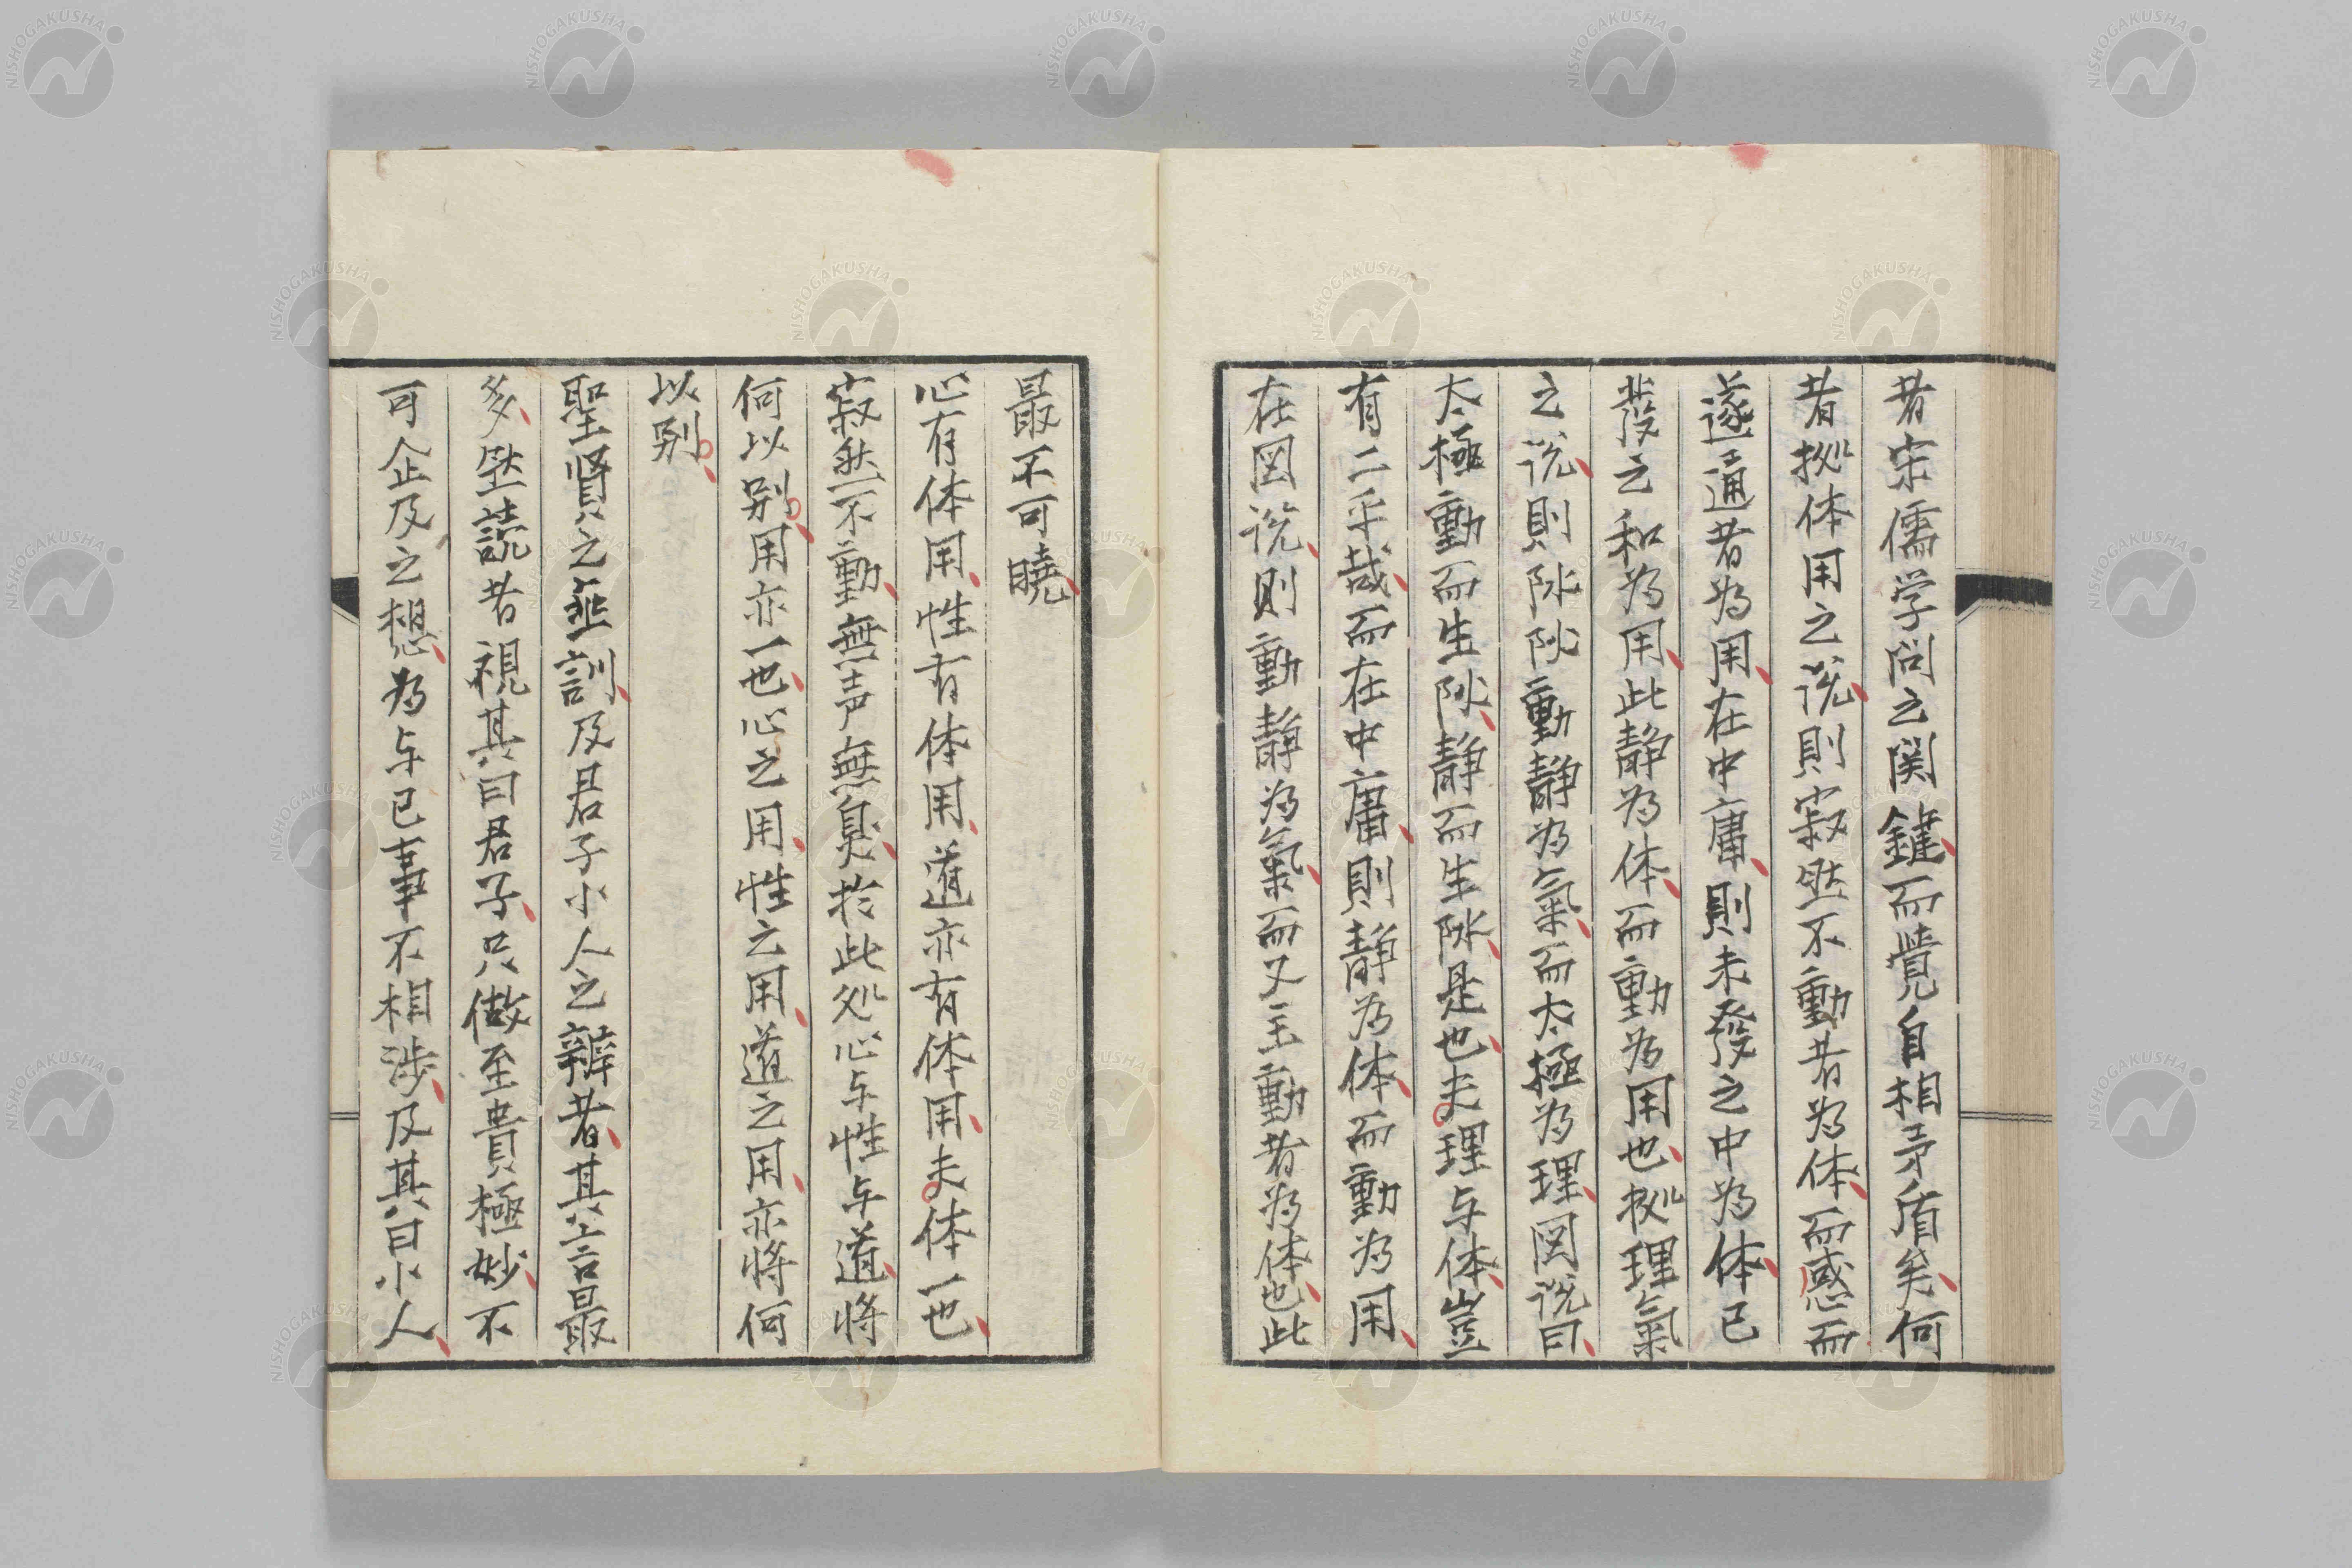 者宋儒学问之関鍵而覺自相矛盾矣何
者拠体用之説則寂然不動者為体而感而
遂通者為用在中庸則未發之中為体已
發之和為用此静為体而動為用也拠理氣
之説則陰陽動静為氣而太極為理図説曰
太極動而生陽静而生陰是也夫理与体豈
有二乎哉而在中庸則静為体而動為用
在図説則動静為氣而又主動者為体也此
最不可曉
心有体用性有体用道亦有体用夫体一也
寂然不動無声無臭於此処心与性与道将
何以别用亦一也心之用性之用道之用亦将何
以别
聖賢之垂訓及君子小人之辨者其言最
多然読者視其曰君子只做至貴極妙不
可企及之想為与已事不相渉及其曰小人
NISHOGAKUSHA